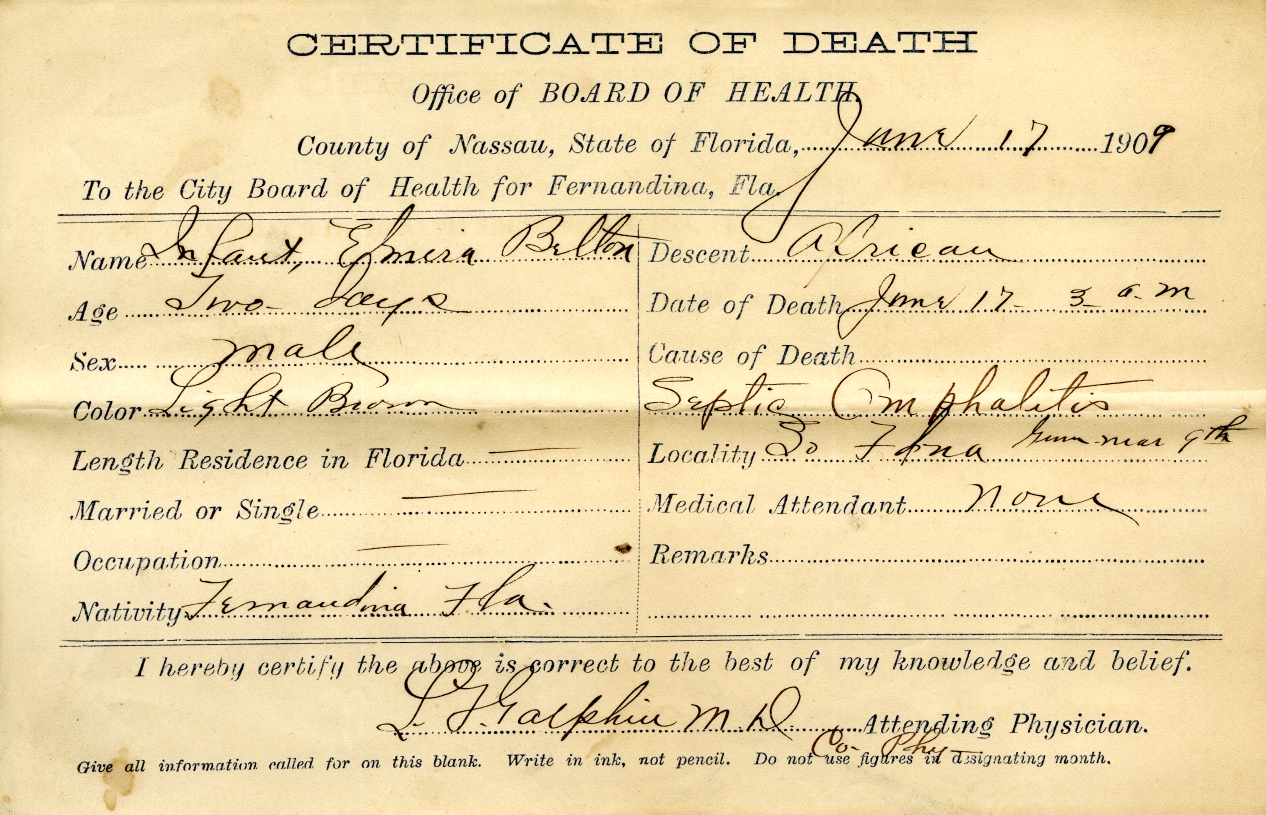 CERTIFICATE OF DEATH
Office of BOARD OF HEALTH,
County of Nassau, State of Florida, June 17 1909
To the City Board of Health for Fernandina, Fla.
Name Infant, Elmira Belton
Age Two days
Sex male
Color Light Brown
Length Residence in Florida —
Married or Single —
Occupation —
Nativity Fernandina Fla.
Descent African
Date of Death June 17 - 3 a.m
Cause of Death
Septic Omphalitis
Locality So Fdna near 9th
Medical Attendant None
Remarks
I hereby certify the above is correct to the best of my knowledge and belief.
Galphin M.D. Attending Physician.
Co- Phy
Give all information called for on this blank. Write in ink, not pencil. Do not use figures in designating month.